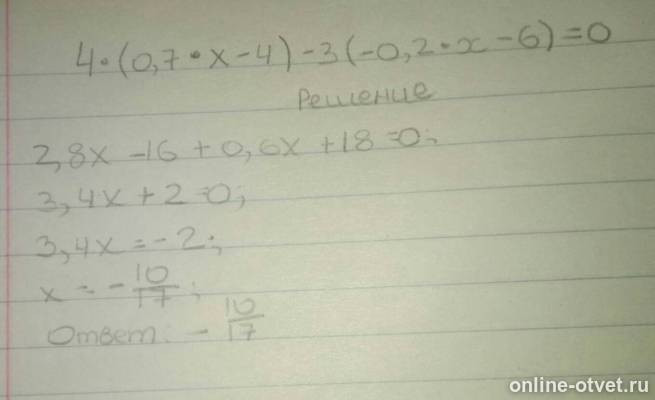 4·(0,7·x-4)-3(-0,2·x-6)=0
Решение
2,8x-16+0,6x+18=0;
3,4x+2=0;
3,4x=-2;
x=-10/17;
Ответ: -10/17
online-otvet.ru